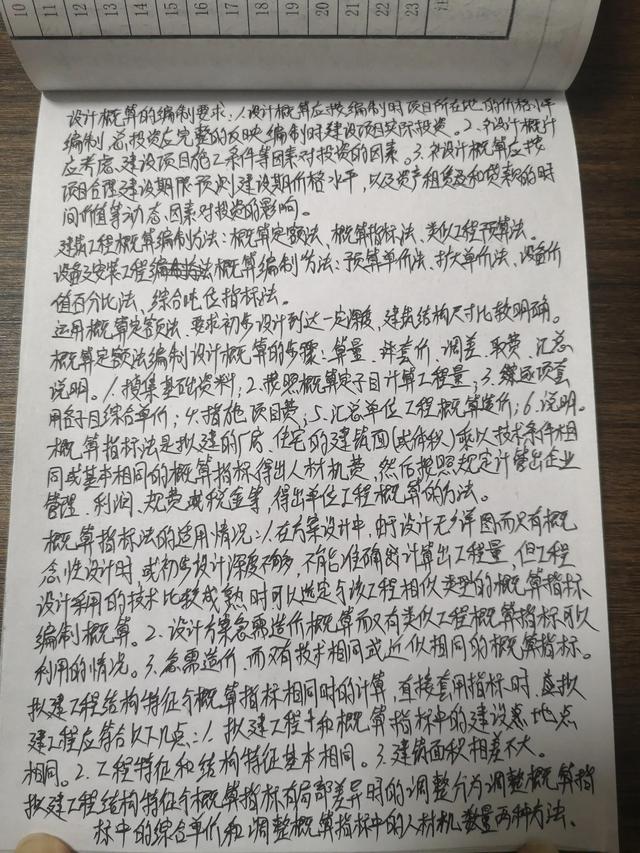 10 11 12 13 14 15 16 17 18 19 20 21 22 23 注
设计概算的编制要求：1.设计概算应按编制时项目所在地的价格水平
编制，总投资应完整的反映编制时建设项目实际投资。2.设计概计
应考虑建设项目施工条件等因素对投资的因素。3.设计概算应按
项目合理建设期限预测建设期价格水平，以及资产租赁和贷款的时
间价值等动态因素对投资的影响。
建筑工程概算编制方法：概算定额法、概算指标法、类似工程预算法。
设备及安装工程概算编制方法：预算单价法、扩大单价法、设备价
值百分比法、综合吨位指标法。
运用概算定额法，要求初步设计到达一定深度，建筑结构尺寸比较明确。
概算定额法编制设计概算的步骤：算量、套价、调差、取费、汇总
说明。1.搜集基础资料；2.按照概算定子目计算工程量；3.项套
用各子目综合单价；4.措施项目费；5.汇总单位工程概算造价；6.说明。
概算指标法是拟建的厂房、住宅的建筑面(或体积)乘以技术条件相
同或基本相同的概算指标得出人材机费，然后按照规定计算出企业
管理、利润、规费或税金等，得出单位工程概算的方法。
概算指标法的适用情况：1.在方案设计中，由于设计无详图而只有概
念性设计时，或初步设计深度不够，不能准确的计算出工程量，但工程
设计采用的技术比较成熟时可以选定与该工程相似类型的概算指标
编制概算。2.设计方案急需造价概算而又有类似工程概算指标可以
利用的情况。3.急需造价，而又有技术相同或近似相同的概算指标。
拟建工程结构特征与概算指标相同时的计算，直接套用指标时，虚拟
建工程应符合以下几点：1.拟建工程和概算指标中的建设地点
相同。2.工程特征和结构特征基本相同。3.建筑面积相差不大。
拟建工程结构特征与概算指标有局部差异时的调整分为调整概算指
标中的综合单价和调整概算指标中的人材机数量两种方法。